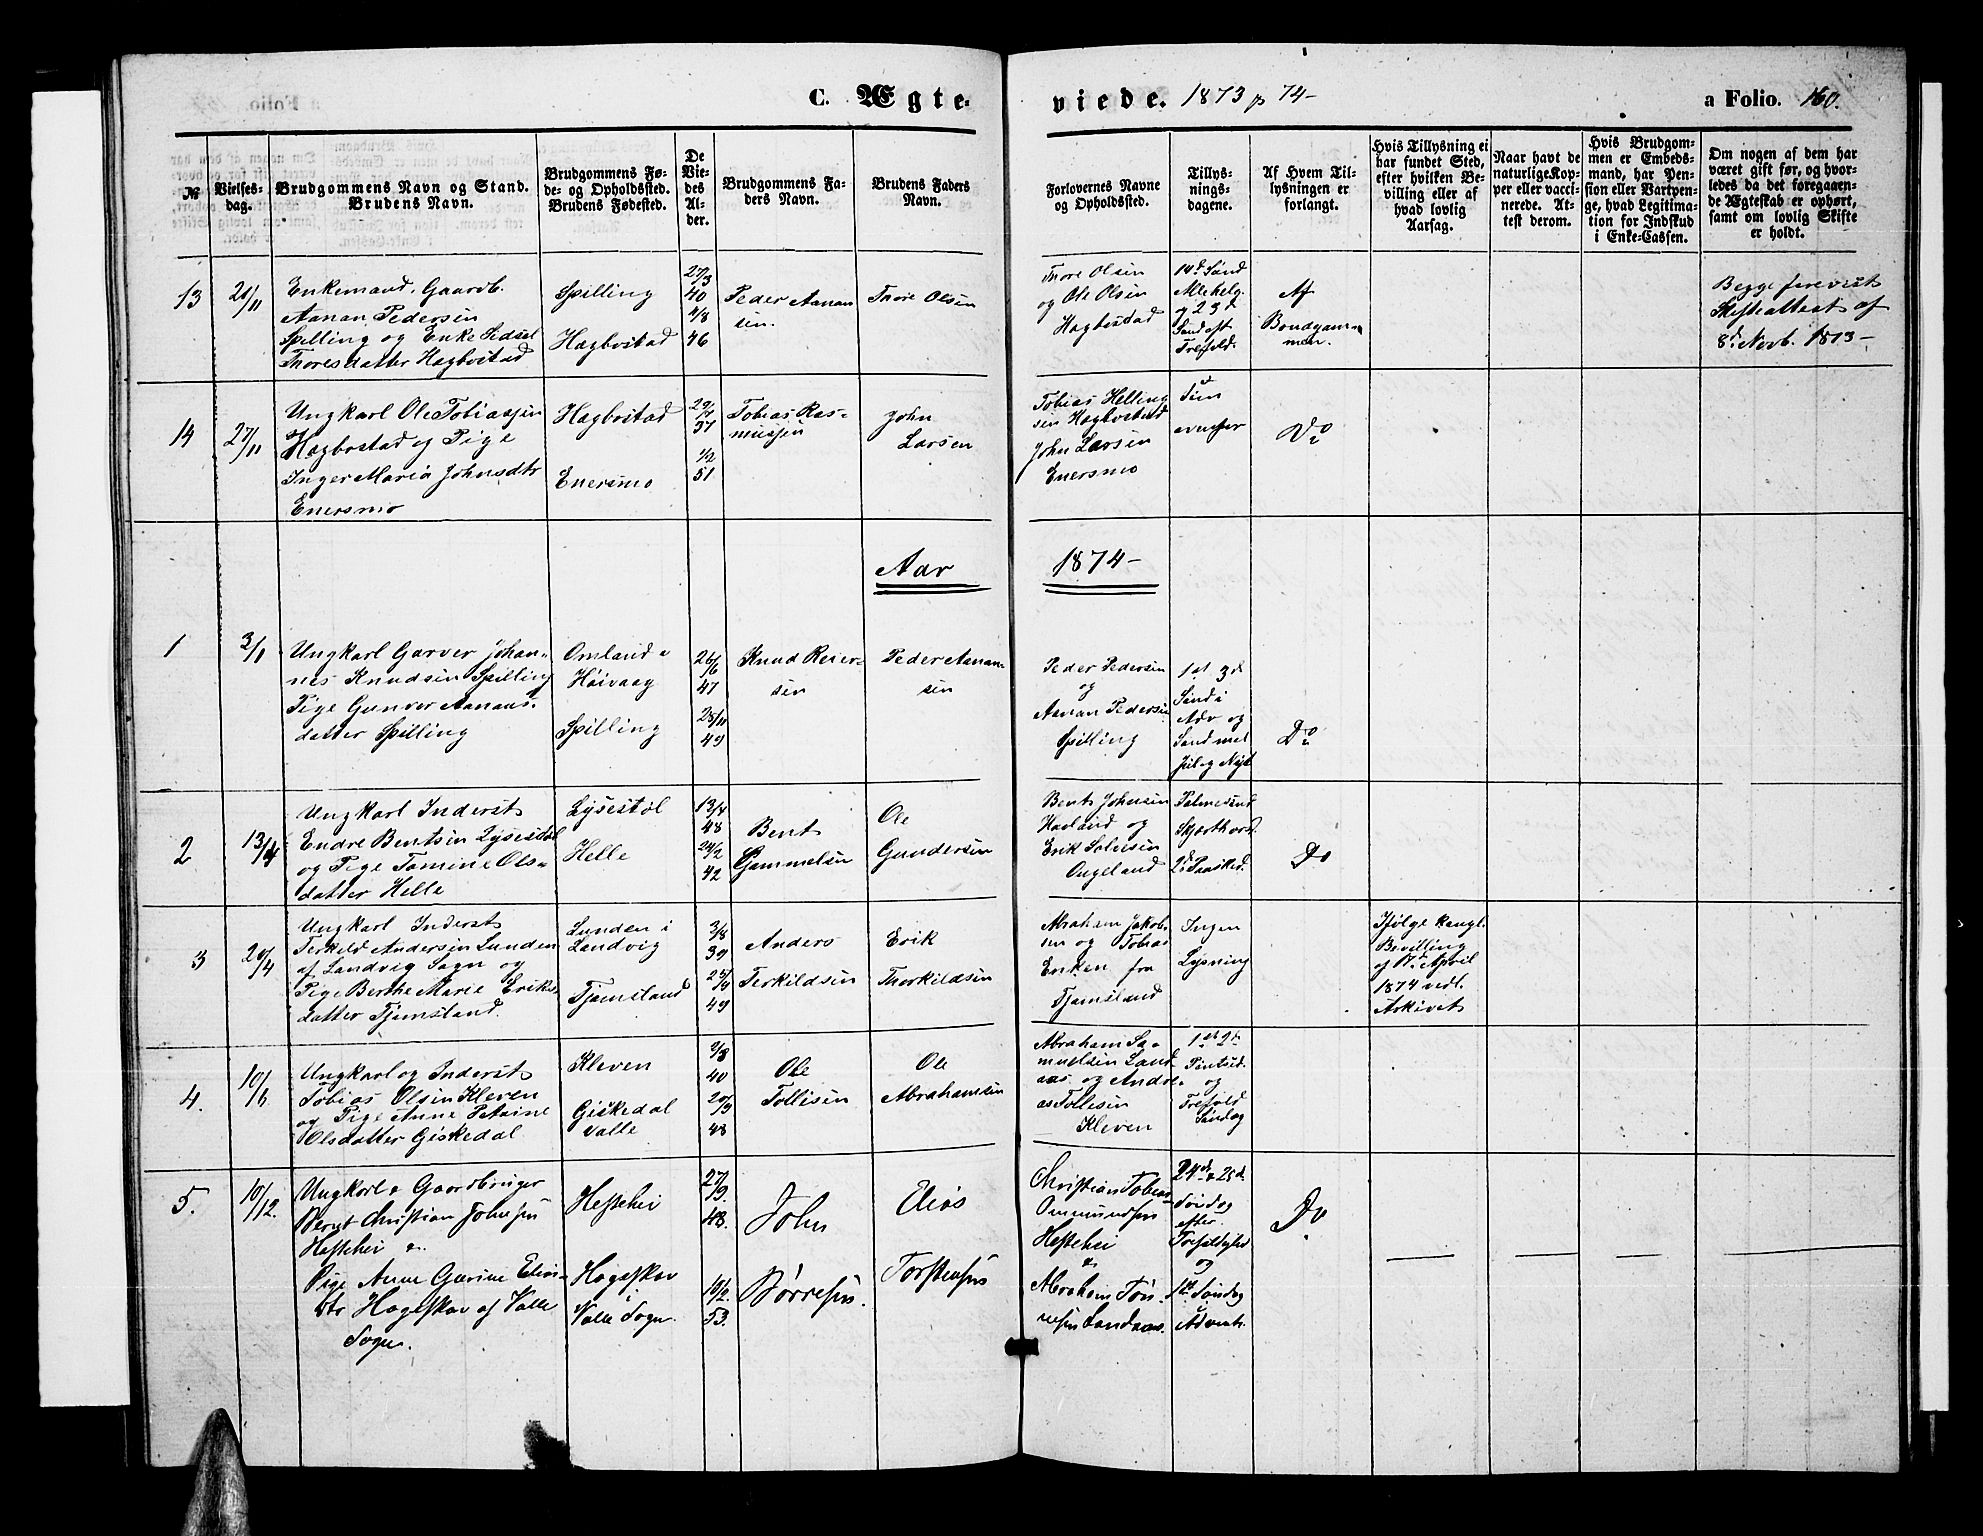 C. Ægte-
viede. 1873 & 74-
a Folio. 160.
№
Vielses-
dag.
Brudgommens Navn og Stand.
Brudens Navn.
Brudgommens Fø-
de- og Opholdssted.
Brudens Fødested.
De
Vie-
des
Al-
der.
Brudgommens Fa-
ders Navn.
Brudens Faders
Navn.
Forlovernes Navne
og Opholdssted.
Tillys-
nings-
dagene.
Af Hvem Til-
lysningen er
forlangt.
Hvis Tillysning ei
har fundet Sted,
efter hvilken Be-
villing eller af
hvad lovlig
Aarsag.
Naar havt de
naturlige Kop-
per eller vacci-
nerede. At-
test derom.
Hvis Brudgom-
men er Embeds-
mand, har Pen-
sion eller Vartpen-
ge, hvad Legitima-
tion for Indskud
i Enke-Cassen.
Om nogen af dem har
været gift før, og hvor-
ledes da det foregaaen-
de Ægteskab er ophørt,
samt om lovlig Skifte
er holdt.
13
21/11
Enkemand, Gaardb.
Aanan Pedersen
Spilling og Enke Sidsel
Thoresdatter Hagbostad
Spilling
Hagbostad
27/3
40
4/8
46
Peder Aanan
sen.
Thore Olsen
Thore Olsen
og Ole Olsen
Hagbostad
Sønd
Allehelg.
og 23d
Sønd eft
Trefold.
Af
Brudgom-
men.
Begge forevist
Skifteattest af
8de Novb. 1873-
14
27/11
Ungkarl Ole Tobiassen
Hagbostad og Pige
Inger Maria Johnsdtr
Enersmo
Hagbostad
Enersmo
37
1/2
51
Tobias Ras-
mussen
John
Larsen
Tobias Helling
sen Hagbostad
John Larsen
Enersmo
Som
ovenfor
Do
Aar
1874-
1
3/1
Ungkarl Garver Johan-
nes Knudsen Spilling
Pige Gunvor Aanans-
datter Spilling
Omland i
Høivaag
Spilling
26/6
47
28/11
49
Knud Reier-
sen
Peder Aanan-
sen
Peder Pedersen
og
Aanan Pedersen
Spilling
1st 3d
Sønd i
Adv og
Sønd mel
Jul og Nyt
Do
2
13/4
Ungkarl Inderst
Endre Bentsen Lysestøl
og Pige Tomine Ols-
datter Helle
Lysestøl
Helle
13/4
48
24/2
42
Bent
Gammelsen
Ole
Gundersen
Bent Johnsen
Havland og
Erik Salvesen
Ougeland
Palmesønd
Skjærthorsd.
2d Paasked.
Do
3
20/4
Ungkarl Inderst
Terkild Andersen Lunden
af Landvig Sogn og
Pige Berthe Marie Eriks-
datter Tjomsland.
Lunden i
Landvig
Tjomsland
3/8
39
49
Anders
Terkildsen
Erik
Thorkildsen
Abraham Jakob-
sen og Tobias
Eriksen fra
Tjomsland
Ingen
Lysning
Ifølge kongl.
Bevilling
af April
1874 vedl.
Arkivet
4.
10/6
Ungkarl og Inderst
Tobias Olsen Kleven
og Pige Anne Petrine
Olsdatter Giskedal
Kleven
Giskedal
Valle
40
20/9
48
Ole
Tollisen
Ole
Abrahamsen
Abraham Sa-
muelsen Land-
aas og Andre-
as Tollesen
Kleven
1st 2d
Pintsed.
og
Trefold
Søndag
5.
10/12.
Ungkarl & Gaardbruger
Bernt Christian Johnsen
Hestehei &
Pige Anne Gurine Elias-
dtr Hageskov af Valle
Sogn.
Hestehei
Hageskov
i
Valle Sogn.
27/9.
48.
10/2.
53.
John
Børresen.
Elias
Torstensen
Christian Tobias
Ommundsen
Hestehei
&
Abraham Tøn-
nesen Landaas.
24de & 25de
Søndag
efter
Trefoldighed
og
1ste Søndag
i
Advent.
Do